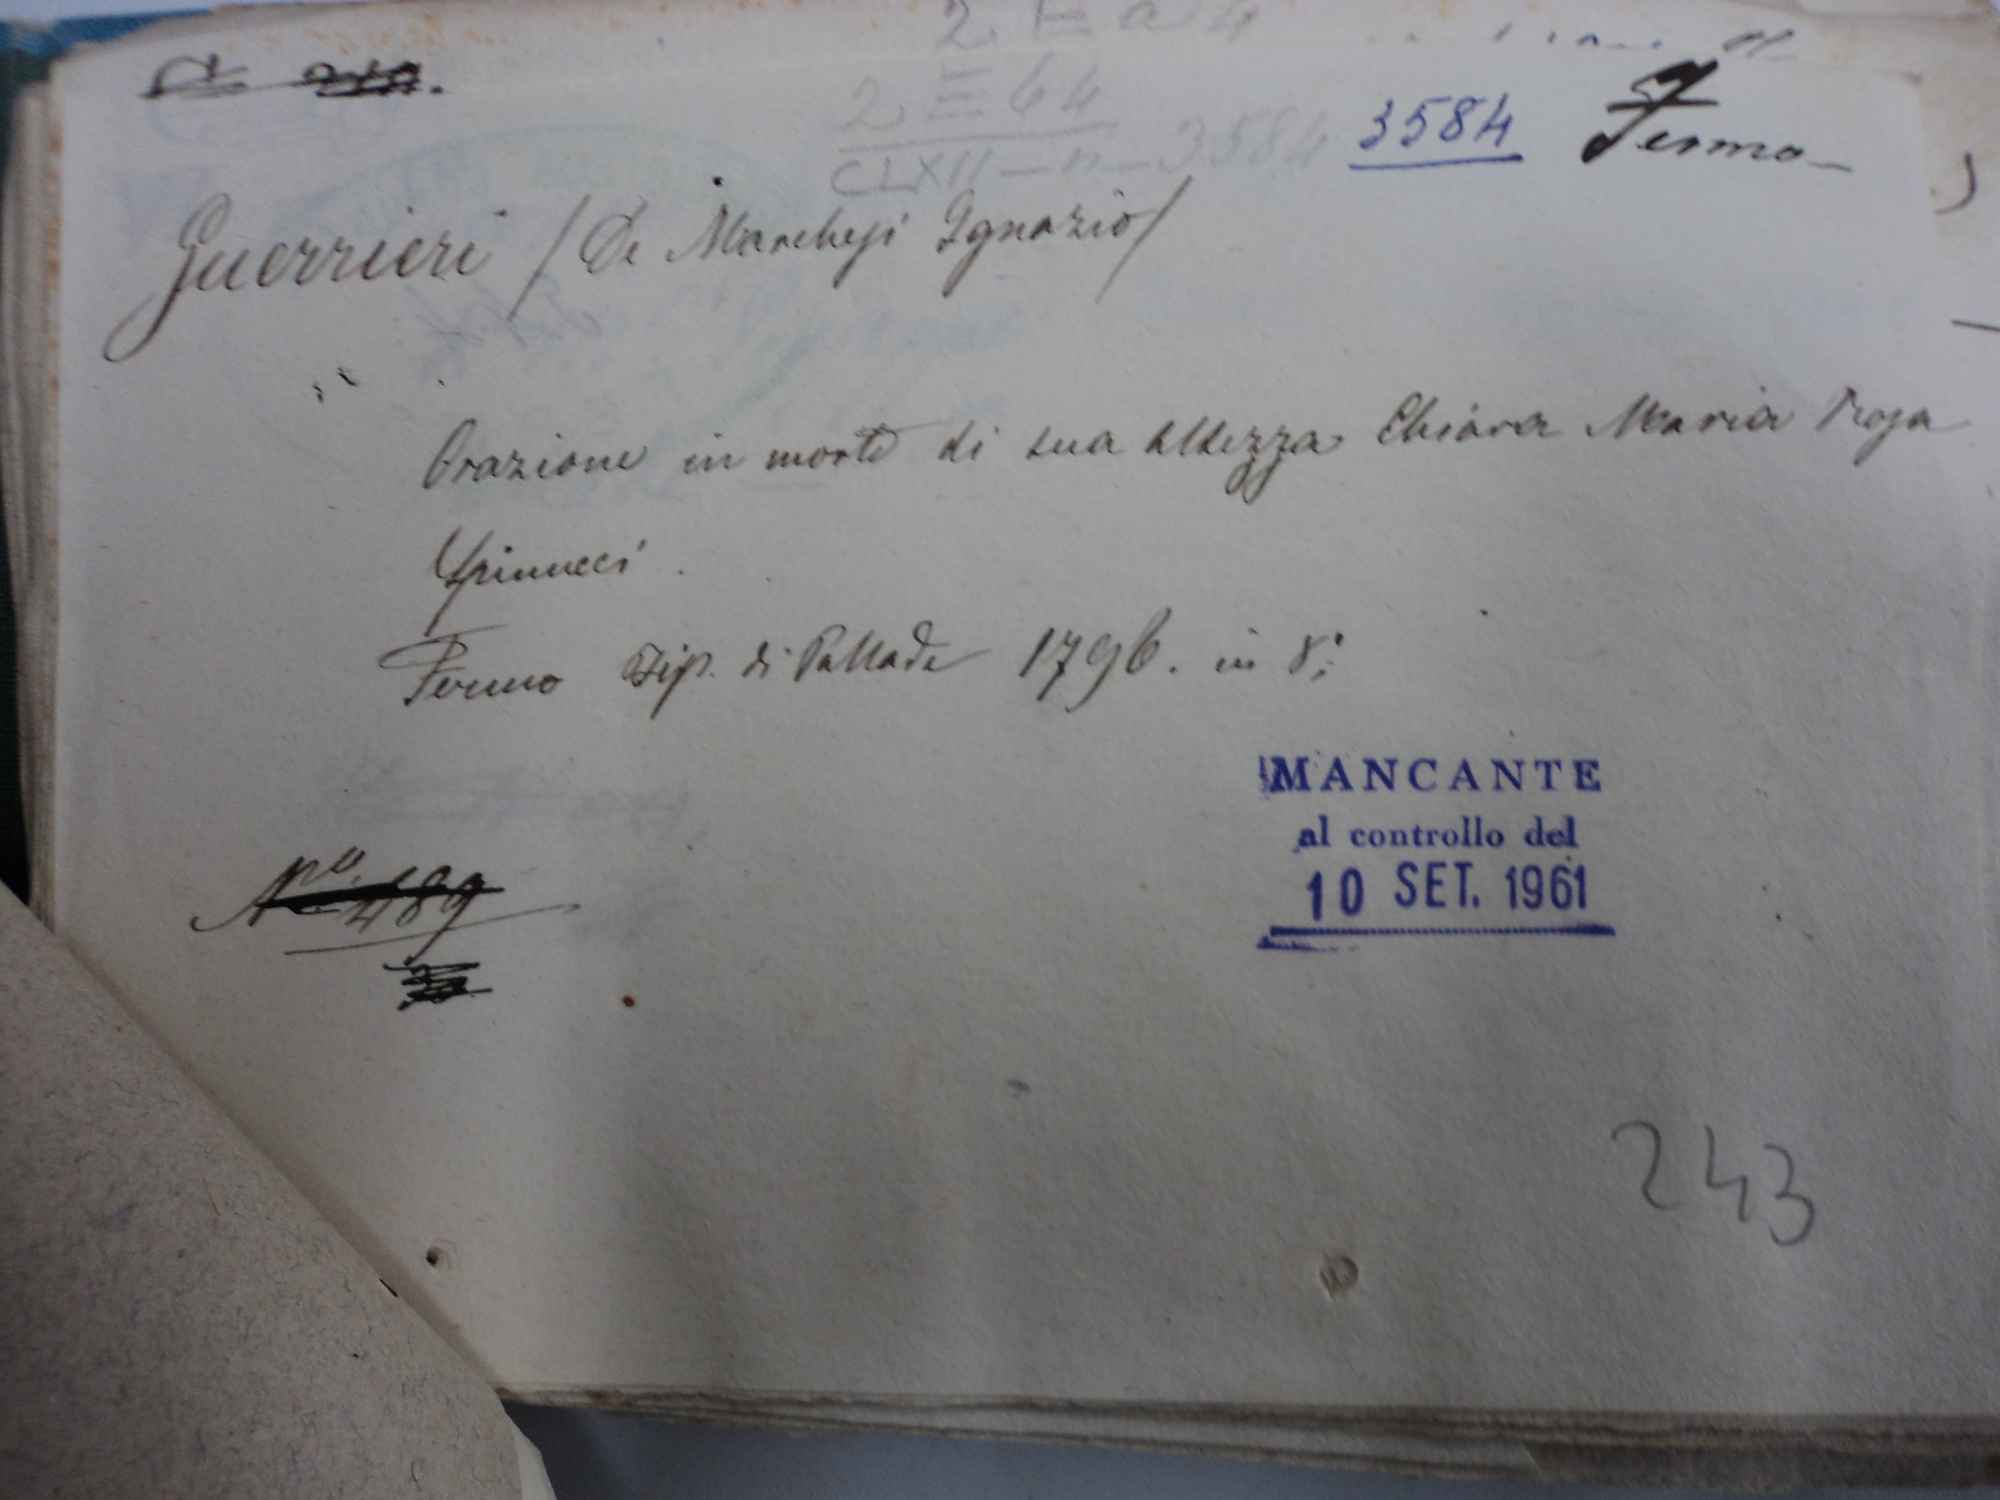 2 E a 4
2 E 64
3584
Fermo
CLXII - n - 3584
Guerrieri / De Marchesi Ignazio /
Orazione in morte di sua altezza Chiara Maria Rosa
Spinucci.
Fermo Tip. di Pallade 1796. in 8.°
MANCANTE
al controllo del
10 SET. 1961
N.° 489
243